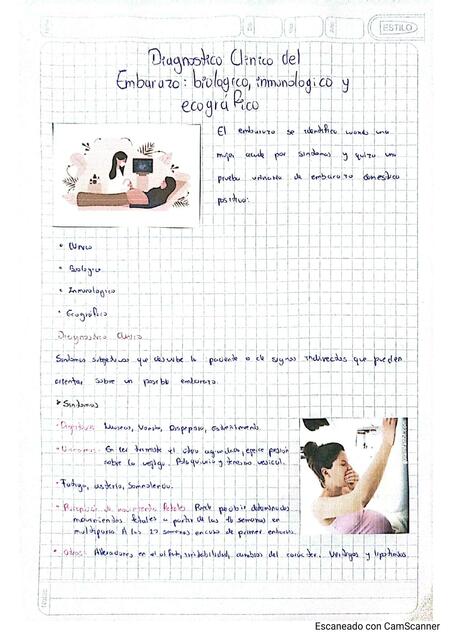 ESTILO
Diagnostico Clinico del
Embarazo: biologico, inmunologico y
ecográfico
El embarazo se identifica cuando una
mujer acude por sintomas y quiza una
prueba urinaria de embarazo domestico
positivo:
• Clinico
• Biologico
• Inmunologico
• Ecográfico
Diagnostico Clinico
Sintomas subjetivos que describe la paciente o de signos indirectos que pueden
orientar sobre un posible embarazo.
Sintomas
• Digestivos: Nauseas, Vomito, Dispepsia, estreñimiento.
• Urinarios: En 1er trimestre el utero agrandado, ejerce presión
sobre la vejiga. Polaquiuria y tenesmo vesical.
• Fatiga, astenia, Somnolencia.
• Percepción de movimientos fetales: Puede percibir determinados
movimientos fetales a partir de las 16 semanas en
multipara. A las semanas en caso de primer embarazo.
• Otros: Alteraciones en el olfato, cambios del carácter. Vertigos y lipotimias.
Escaneado con CamScanner